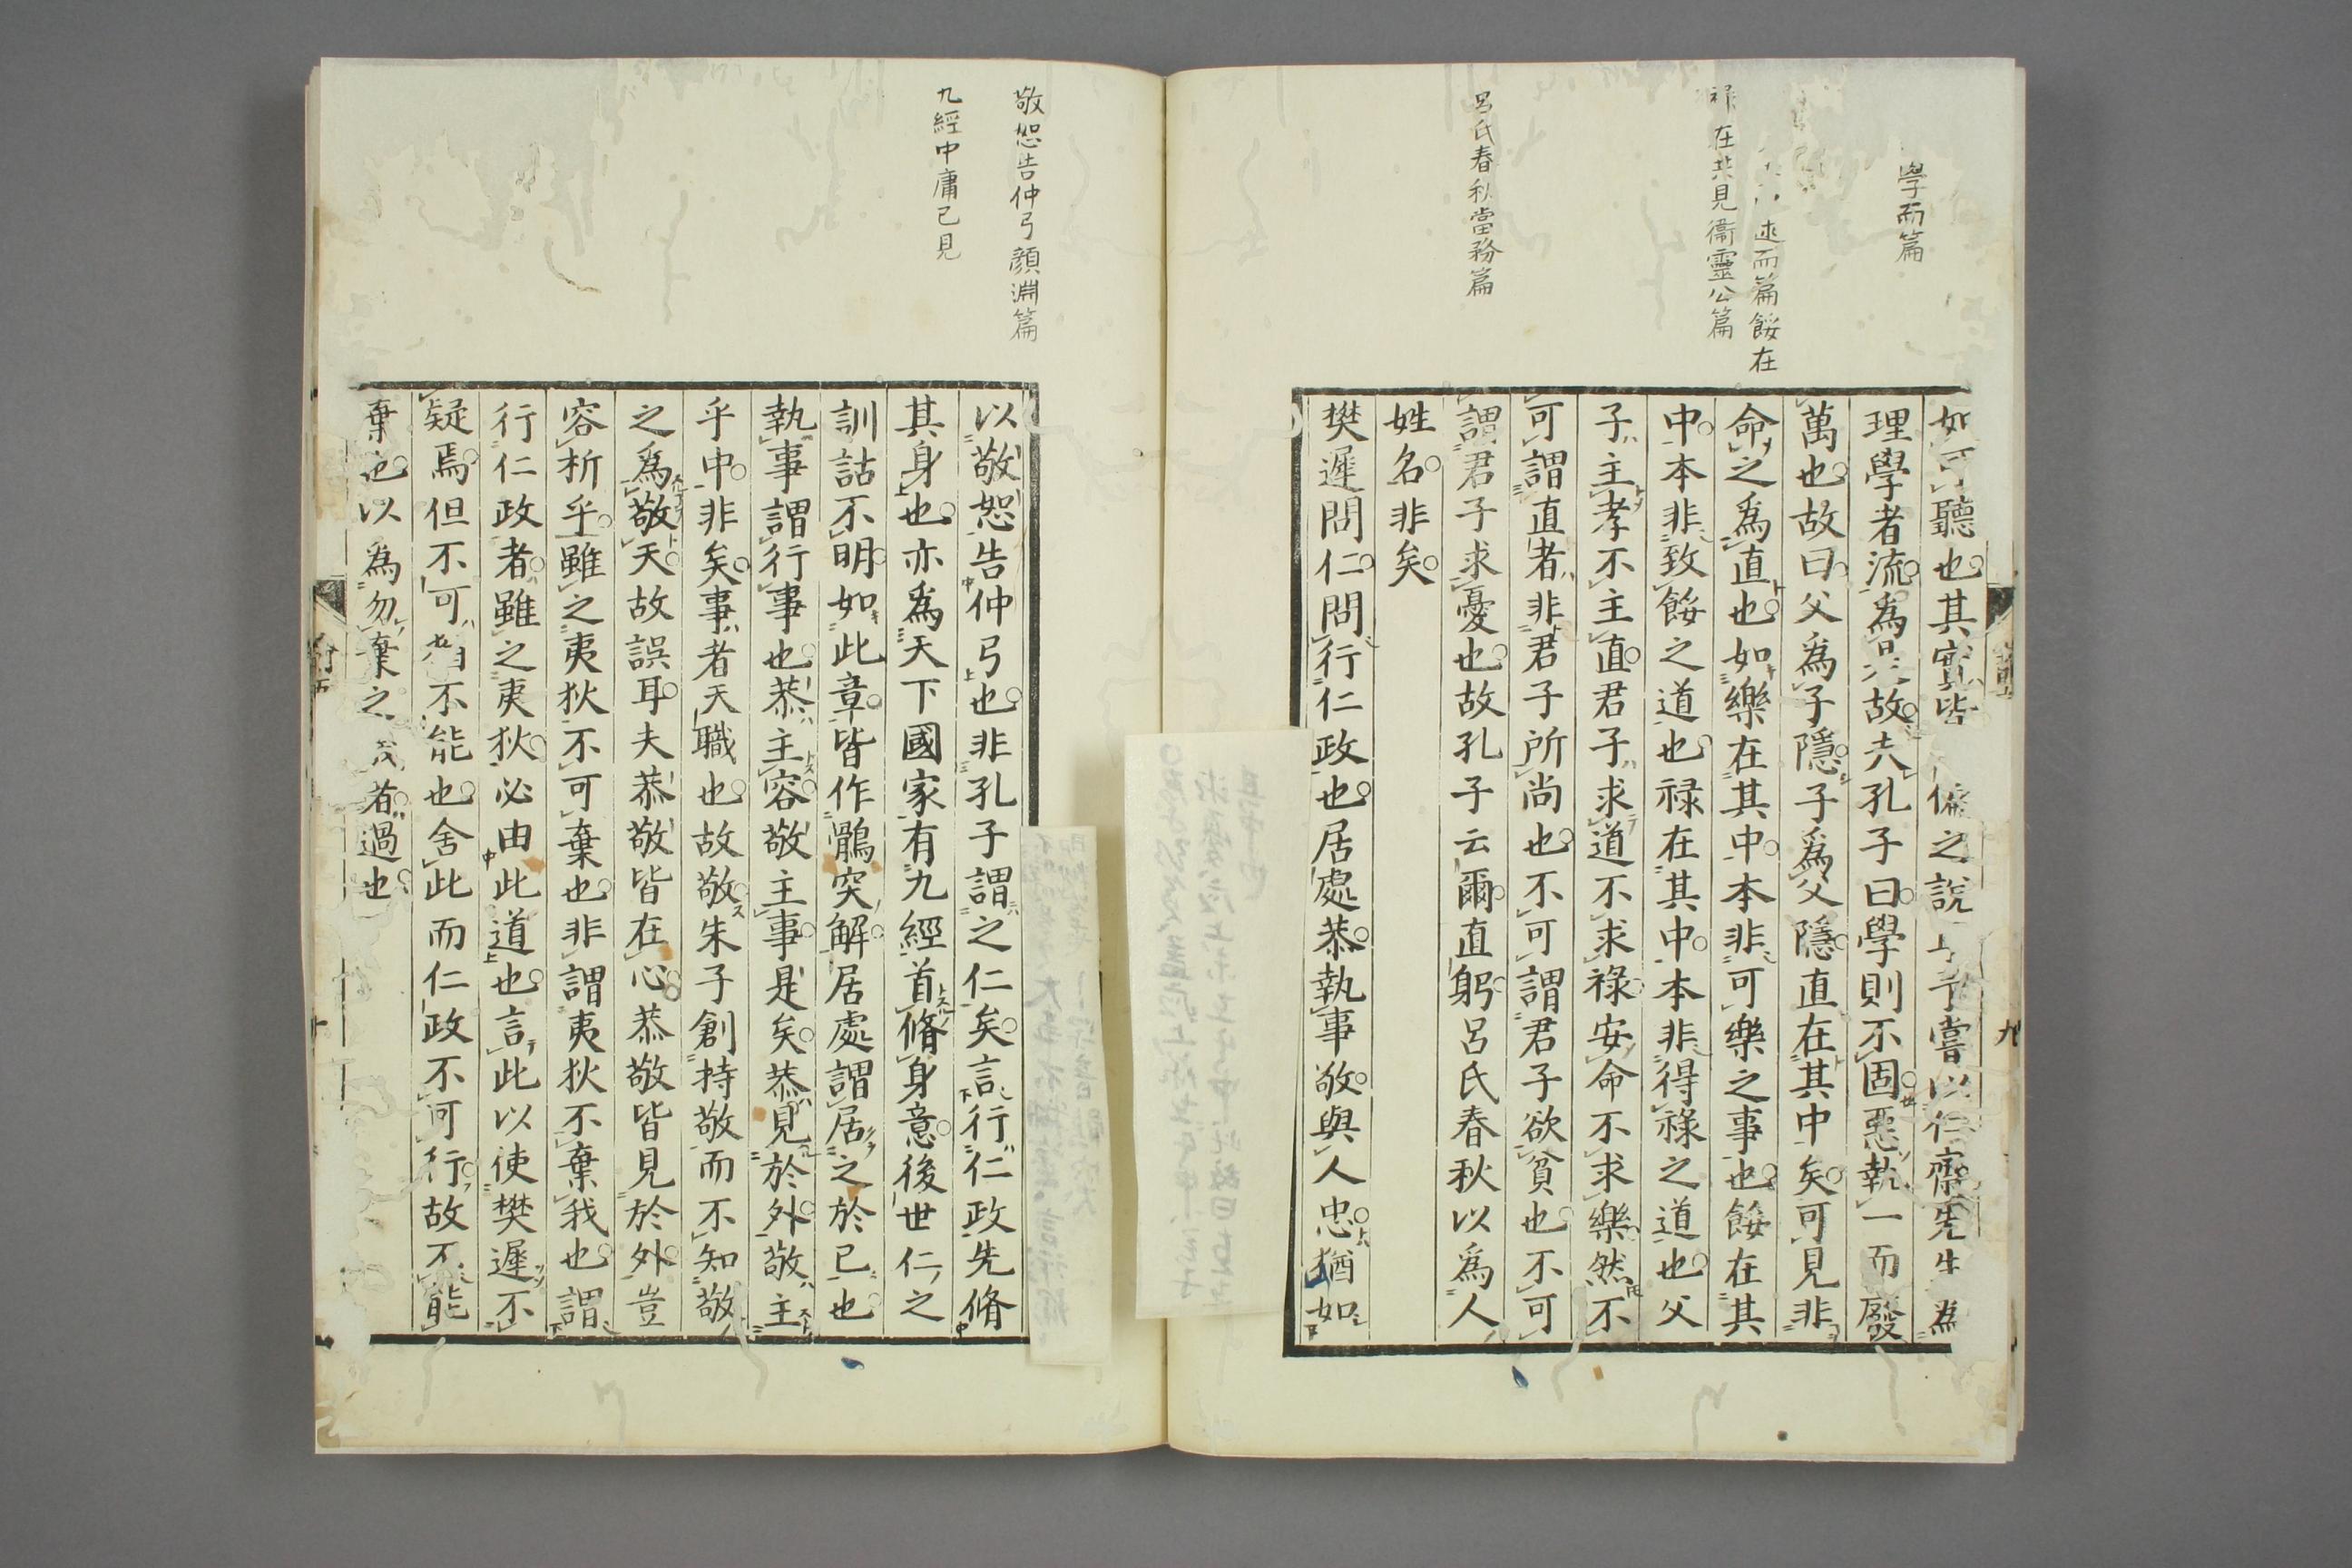 學而篇
述而篇餒在
祿在共見衞靈公篇
呂氏春秋當務篇
如可聽也其實皆偏之說予嘗以仁齋先生爲
理學者流爲是故夫孔子曰學則不固惡執一而廢
萬也故曰父爲子隱子爲父隱直在其中矣可見非
命之爲直也如樂在其中本非可樂之事也餒在其
中本非致餒之道也祿在其中本非得祿之道也父
子主孝不主直君子求道不求祿安命不求樂然不
可謂直者非君子所尚也不可謂君子欲貧也不可
謂君子求憂也故孔子云爾直躬呂氏春秋以爲人
姓名非矣
樊遲問仁問行仁政也居處恭執事敬與人忠猶如
敬恕告仲弓顏淵篇
九經中庸已見
以敬恕告仲弓也非孔子謂之仁矣言行仁政先脩
其身也亦爲天下國家有九經首脩身意後世仁之
訓詁不明如此章皆作鶻突解居處謂居之於已也
執事謂行事也恭主容敬主事是矣恭見於外敬主
乎中非矣事者天職也故敬朱子創持敬而不知敬
之爲敬天故誤耳夫恭敬皆在心恭敬皆見於外豈
容析乎雖之夷狄不可棄也非謂夷狄不棄我也謂
行仁政者雖之夷狄必由此道也言此以使樊遲不
疑焉但不可 不能也舍此而仁政不可行故不能
棄也以爲勿棄之 者過也